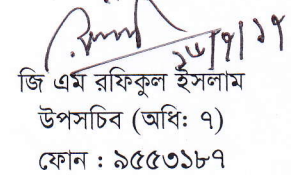 ২৮/৭/১৭
জি এম রফিকুল ইসলাম
উপসচিব (অধি: ৭)
ফোন : ৯৫৫৩১৮৭